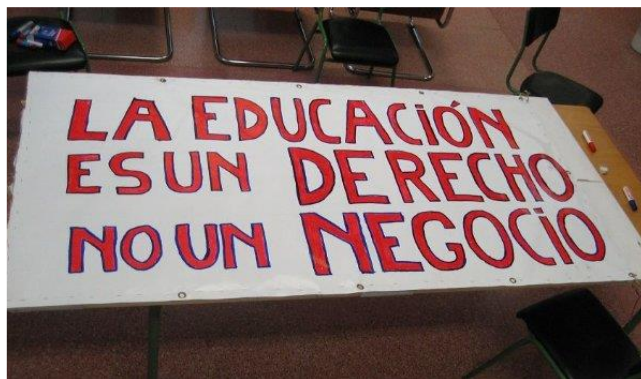 LA EDUCACiÓN
ES UN DERECHO
NO UN NEGOCiO